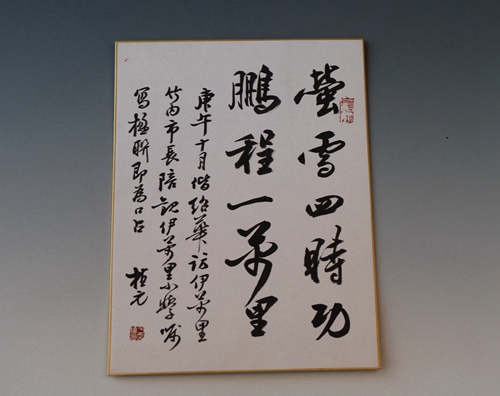 螢雪四時功
鵬程一萬里
庚午十月偕紹華訪伊萬里
竹内市長陪觀伊萬里小學嘱
寫楹聯即為口占
植元